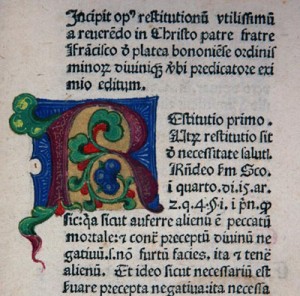 Incipit op⁹ restitutionũ vtilissimũ
a reuerẽdo in Christo patre fratre
Frãcisco ð platea bononiẽse ordinis
minoꝝ diuiniq3 v̾bi predicatore exi
mio editum.
REstitutio primo.
Aitꝝ restitutio sit
ð necessitate saluti.
Rñdeo ẜm Sco.
i quarto.di.15.ar.
2.q.4.§.i.
sic: qa sicut auferre alienũ ẽ peccatũ
mortale: et conẽ preceptũ diuinũ ne
gatiuũ.s.nõ furtũ facies, ita et tenẽ
alienũ. Et ideo sicut necessariũ est
seruare precepta negatiua:ita necessa